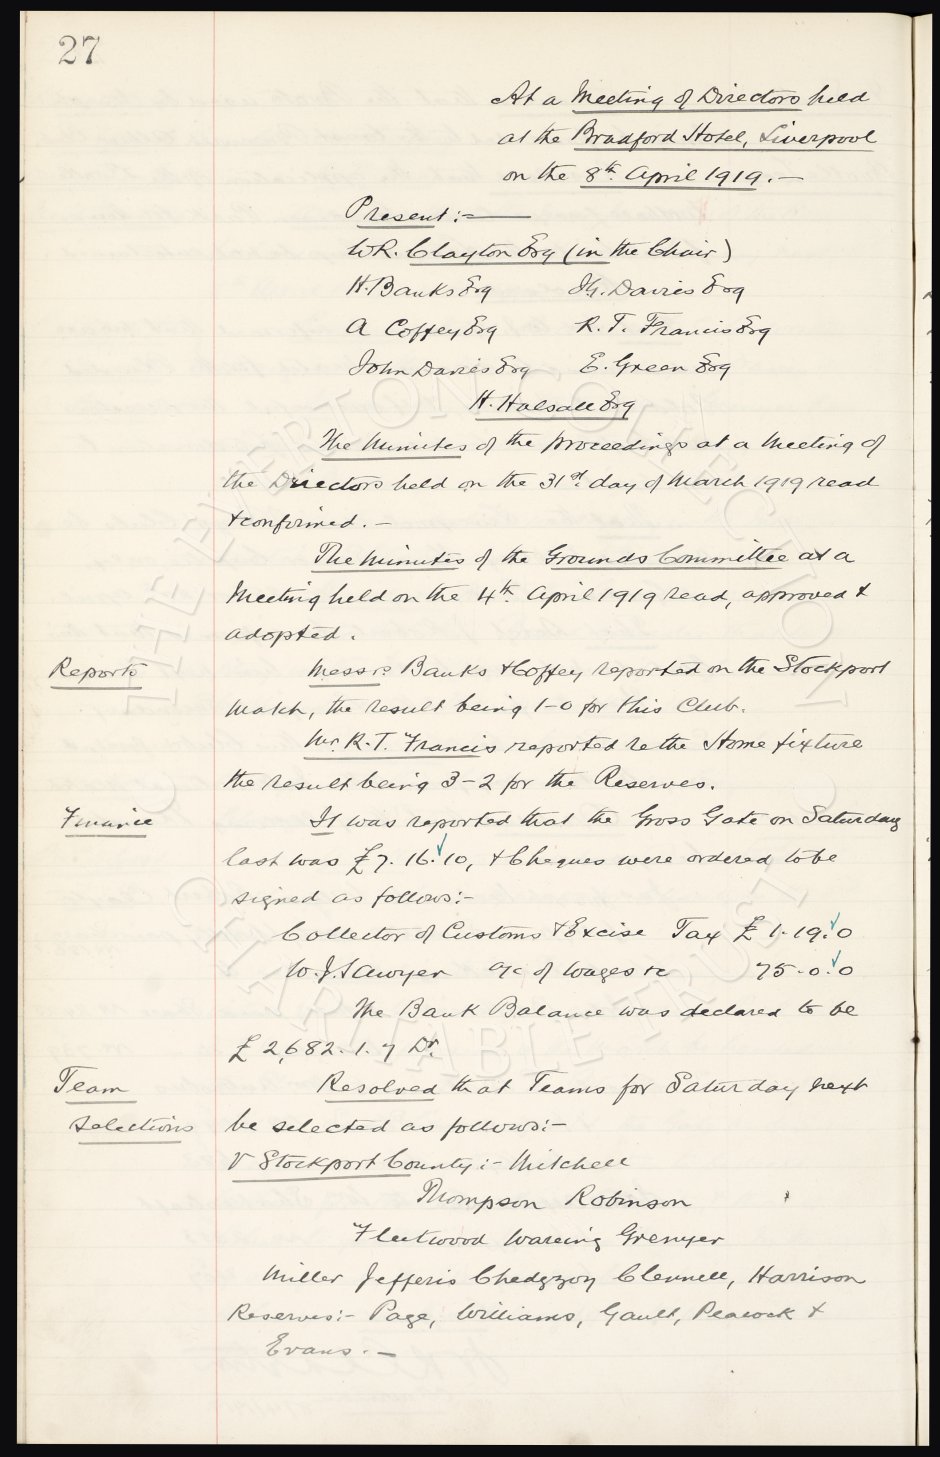 27
At a Meeting of Directors held
at the Bradford Hotel, Liverpool
on the 8th. April 1919. —
Present :-
W.R. Clayton Esq (in the Chair)
H. Banks Esq Dr. Davies Esq
A Coffey Esq R. T. Francis Esq
John Davies Esq E. Green Esq
H. Halsall Esq
The Minutes of the proceedings at a Meeting of
the Directors held on the 31st. day of March 1919 read
& confirmed. —
The Minutes of the Grounds Committee at a
Meeting held on the 4th. April 1919 read, approved &
adopted.
Reports Messrs. Banks & Coffey reported on the Stockport
match, the result being 1-0 for this Club.
Mr. R. T. Francis reported re the Home fixture
the result being 3-2 for the Reserves.
Finance It was reported that the Gross Gate on Saturday
last was £7. 16. 10, & Cheques were ordered to be
signed as follows:-
Collector of Customs & Excise Tax £ 1. 19. 0
W.J. Sawyer a/c of wages &c 75. 0. 0
The Bank Balance was declared to be
£ 2,682. 1. 7 Dr.
Team Resolved that Teams for Saturday next
Selections be selected as follows:-
V Stockport County :- Mitchell
Thompson Robinson
Fleetwood Wareing Grenyer
Miller Jefferis Chedgzoy Clennell, Harrison
Reserves:- Page, Williams, Gault, Peacock &
Evans. —
THE EVERTON COLLECTION
CHARITABLE TRUST